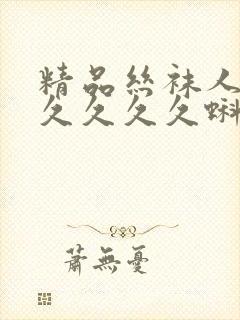 精品絲袜人
久久久久蝌
蕭無憂